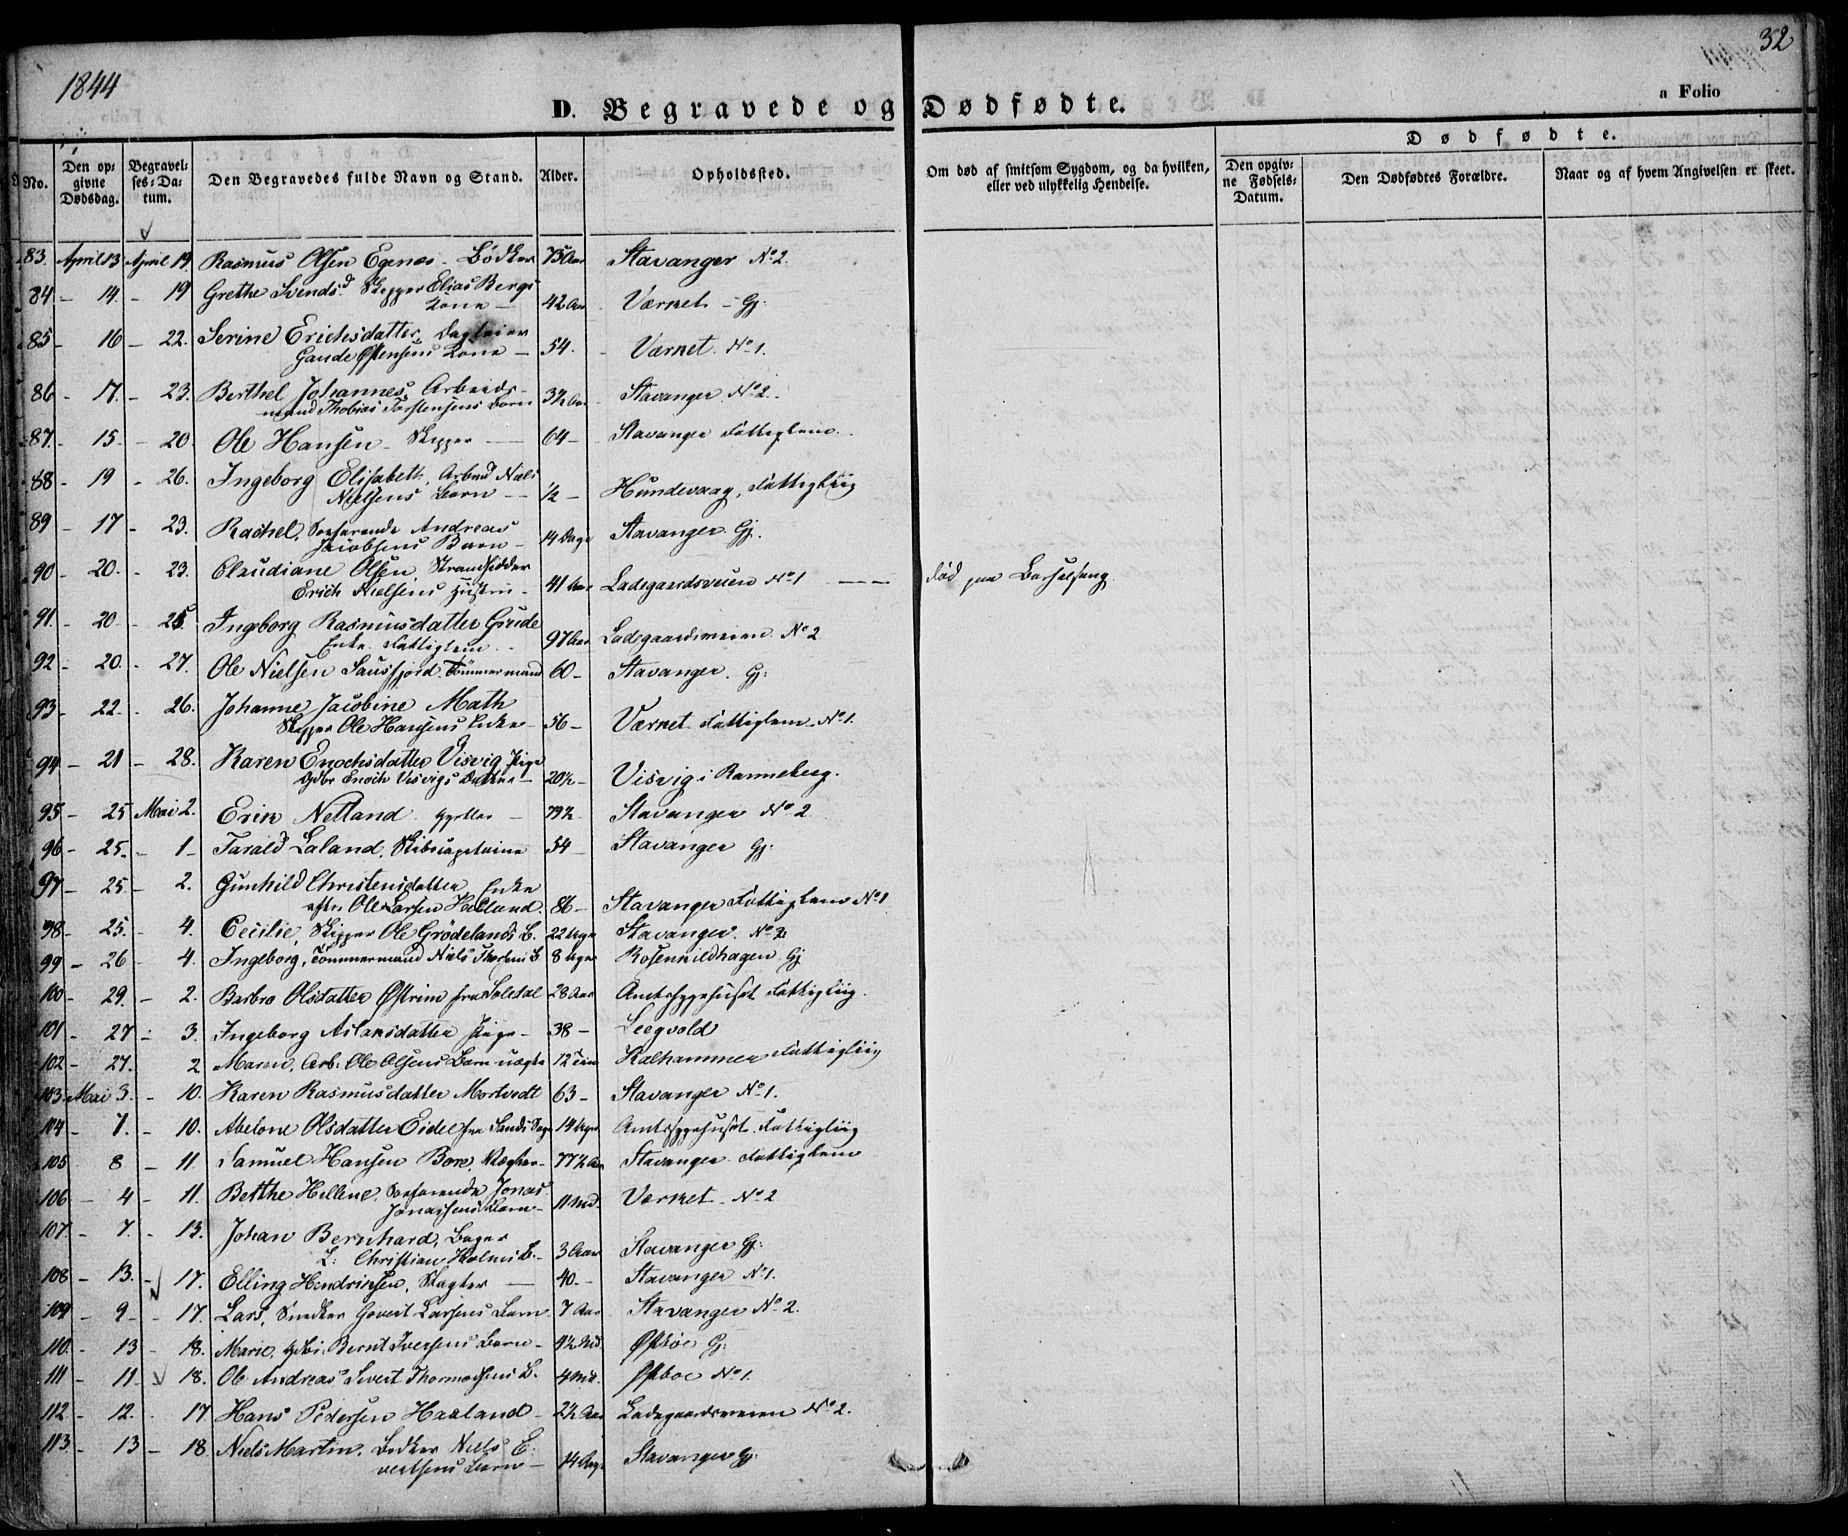 1844
32
D. Begravede og Dødfødte.
a Folio
No.
Den opgivne Dødsdag.
Begravelses-Datum.
Den Begravedes fulde Navn og Stand.
Alder.
Opholdssted.
Om død af smitsom Sygdom, og da hvilken, eller ved ulykkelig Hendelse.
Dødfødte.
Den opgivne Fødsels-Datum.
Den Dødfødtes Forældre.
Naar og af hvem Angivelsen er skeet.
83. April 13 April 19 Rasmus Olsen Egenæs - Bödker 75 Aar Stavanger No 2.
84 - 14. - 19 Grethe Svendsd. Skipper Elias Bergs
Kone - 42 Aar Værket - Gj:
85 - 16 - 22. Serine Erichsdatter,
Gaude Østensens Kone - 54. Værket. No 1.
86 - 17. - 23. Berthel Johannes, Arbeids-
mand Thobias Torstensens Barn 3½ Aar Stavanger No 2.
87. - 15. - 20. Ole Hansen - Skipper - 64 - Stavanger Fattiglem.
88 - 19 - 26. Ingeborg Elisabeth, Arbmd Niels
Nielsens Barn - ½ - Hundevaag, Fattigliig
89 - 17 - 23. Rachel, Søefarende Andreas
Jacobsens Barn - 14 Dage Stavanger Gj.
90 - 20. - 23. Claudiane Olsen, Strandsidder
Erich Nielsens Hustru - 41 Aar Ladegaardsveien No 1 - Død paa Barselseng.
91. - 20 - 25 Ingeborg Rasmusdatter Gaude
Enke Fattiglem. 97 Aar Ladegaardsveien No 2
92 - 20. - 27. Ole Nielsen Tømmermand 60 - Stavanger. Gj:
93 - 22. - 26. Johanne Jacobine Math
Skipper Ole Hansens Enke - 56 - Værket Fattiglem. No 1.
94 - 21 - 28. Karen Enochsdatter Visvig, Pige
Gdbr Enoch Visvigs Datter - 20½ - Visvig i Ranneberg.
95 - 25 Mai 2. Erik Netland - 79½ Stavanger No 2
96 - 25. - 1 - Tarald Laland, Skibscaptaine 54 - Stavanger Gj:
97 - 25 - 2. Gunhild Christensdatter, Enke
efter Ole Larsen Helland. 86 - Stavanger Fattiglem No 1
98 - 25. - 4. Cecilie, Skipper Ole Grödelands B. 22 Uger Stavanger. No 2
99 - 26 - 4. Ingeborg, Tömmermand Niels B. 8 Uger Rosenkildhagen Gj
100 - 29. - 2. Barbro Olsdatter Østrim fra 28 Aar Amtssygehuset Fattigliig.
101 - 27 - 3. Ingeborg Aslaksdatter Pige - 38 - Leegvold
102 - 27. 2 Maren, Arb: Ole Olsens Barn uægte 12 Tim Kalhammer Fattigliig
103 Mai 3. - 10. Karen Rasmusdatter Mortvedt 63 - Stavanger No 1.
104 - 7. - 10. Abelone Olsdatter Eide fra Sands Sogn 14 Uger Amtssygehuset. Fattigliig
105 8 - 11. Samuel Hansen Bore, Vægter - 77½ Aar Stavanger Fattiglem
106 - 4 - 11. Berthe Hellene, Søefarende Jonas
Jonassens Barn - 11 Md. Værket No 2
107. - 7. - 13. Johan Bernhard, Bager
L. Christian Holms B. 3 Aar Stavanger Gj:
108 - 13. 17. Elling Hendriksen, Slagter - 40. - Stavanger No 1.
109 - 9 - 17. Lars, Snedker Govert Larsens Barn 7 Aar Stavanger No 2.
110. - 13 - 18. Marie, Gdbr. Bernt Iversens Barn - 4½ Md. Østböe Gj.
111 - 11 - 18. Ole Andreas Sivert Thormodsens B. 4 Md. Østboe No 1.
112 - 12. - 17. Hans Pedersen Haaland - 2½ Aar Ladegaardsveien No 2.
113. - 13 - 18. Niels Martin, Bødker Niels E:
vertsens Barn - 14 Dage Stavanger Gj: